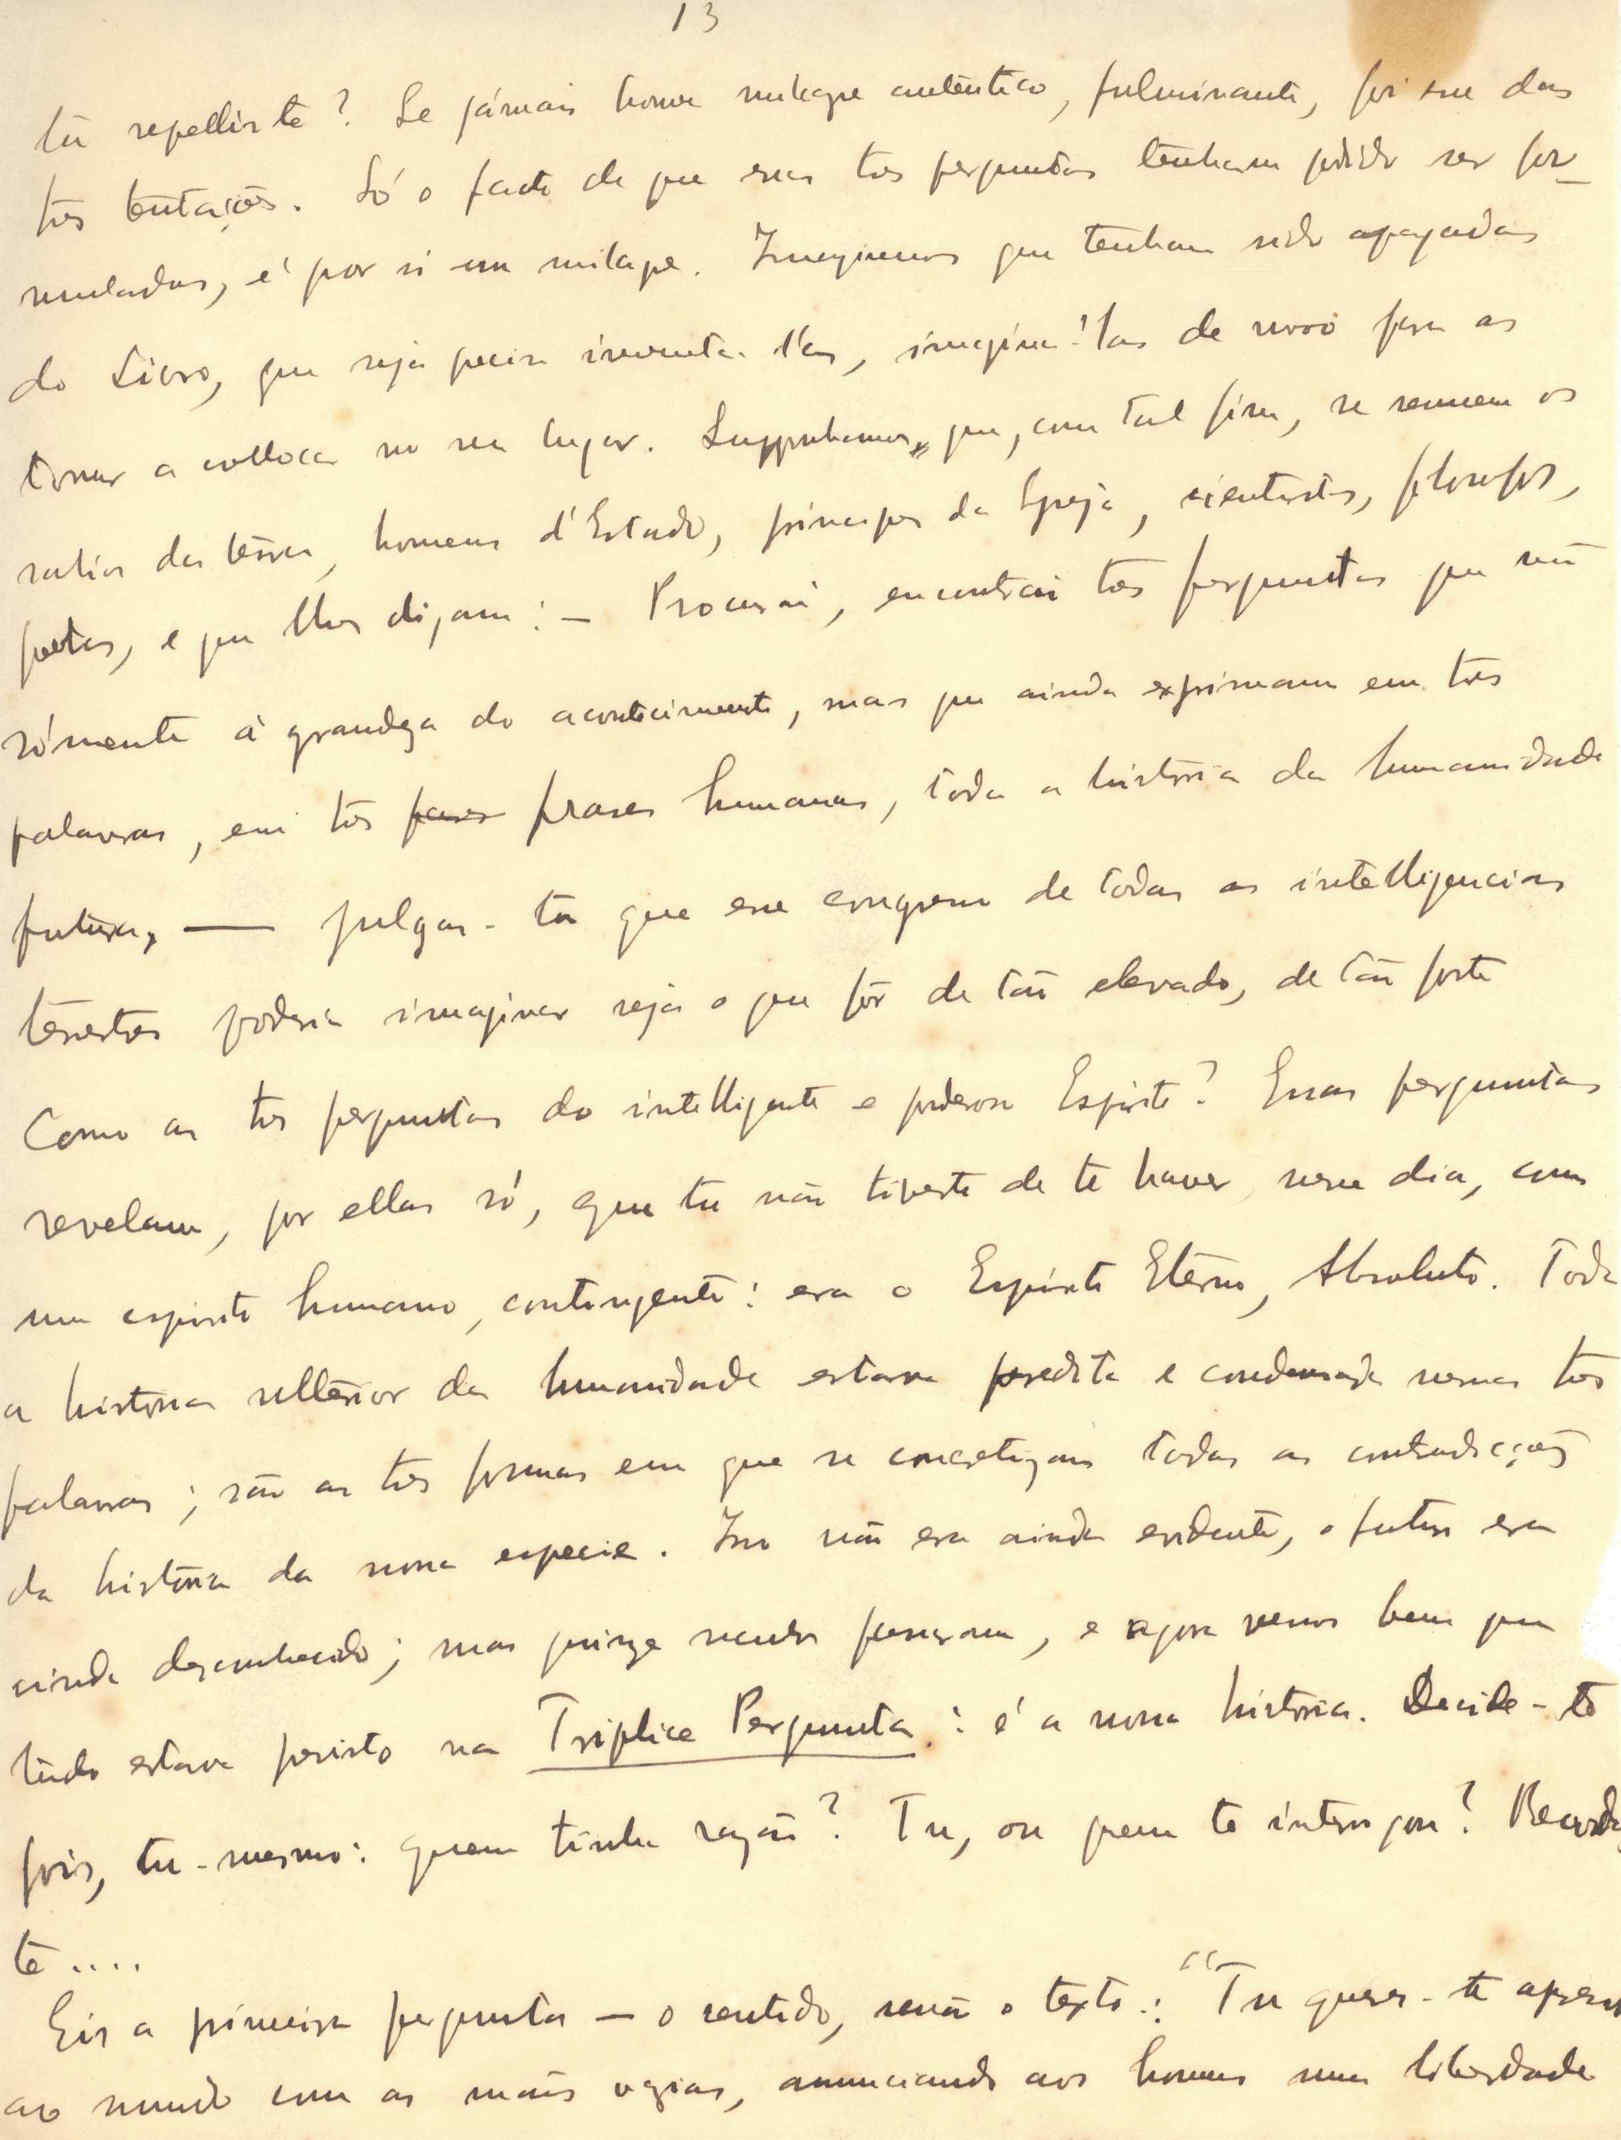 13
tu repelliste? Se jámais houve milagre autêntico, fulminante, foi esse das
tres tentações. Só o facto de que essas tres perguntas tenham podido ser for-
muladas, é por si um milagre. Imaginemos que tenham sido apagadas
do Livro, que seja preciso inventa-l'as, imagina-'las de novo para as
tornar a collocar no seu lugar. Supponhamos, que, com tal fim, se reunem os
sabios da terra, homens d'Estado, principes da Egreja, scientistas, filosofos,
poetas, e que lhes digam: — Procurai, encontrai tres perguntas que não
sómente á grandeza do acontecimento, mas que ainda exprimam em tres
palavras, em tres frases humanas, toda a historia da humanidade
futura, — julgas-tu que esse congresso de todas as intelligencias
terrestres poderia imaginar seja o que fôr de tão elevado, de tão forte
Como as tres perguntas do intelligente e poderoso Espirito? Essas perguntas
revelam, por ellas só, que tu não tiveste de te haver, nesse dia, com
um espirito humano, contingente: era o Espirito Eterno, Absoluto. Toda
a historia ulterior da humanidade estava predita e condensada nessas tres
palavras; são as tres formas em que se concretizam todas as contradicções
da história da nossa especie. Isso não era ainda evidente, o futuro era
ainda desconhecido; mas quinze seculos passaram, e agora vemos bem que
tudo estava previsto na Triplice Pergunta: é a nossa historia. Decide-te
pois, tu-mesmo: quem tinha razão? Tu, ou quem te interrogou? Recorda
te ....
Eis a primeira pergunta — o sentido, senão o texto: "Tu queres-te
ao mundo com as mãos vazias, annunciando aos homens uma liberdade